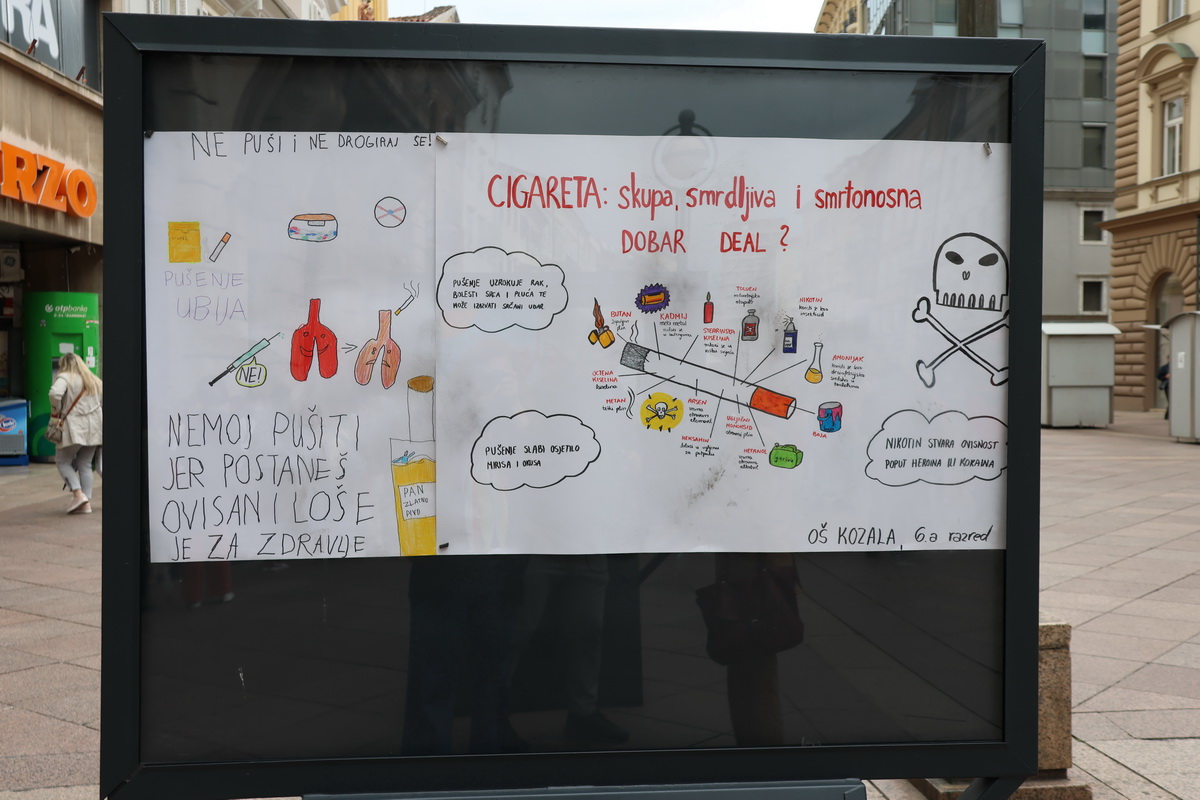 RA
RZO
otpbanka
NE PUŠI i NE DROGIRAJ SE!
PUŠENJE
UBIJA
NE!
NEMOJ PUŠITI
JER POSTANEŠ
OVISAN I LOŠE
JE ZA ZDRAVLJE
PAN
ZLATNO
PIVO
CIGARETA: skupa, smrdljiva i smrtonosna
DOBAR DEAL?
PUŠENJE UZROKUJE RAK,
BOLESTI SRCA I PLUĆA TE
MOŽE IZAZVATI SRČANI UDAR
PUŠENJE SLABI OSJETILO
MIRISA I OKUSA
BUTAN
KADMIJ
STEARINSKA
KISELINA
TOLUEN
NIKOTIN
AMONIJAK
OCTENA
KISELINA
METAN
ARSEN
UGLJIČNI
MONOKSID
HEKSAMIN
METANOL
BOJA
NIKOTIN STVARA OVISNOST
POPUT HEROINA ILI KOKAINA
OŠ KOZALA, 6.a razred